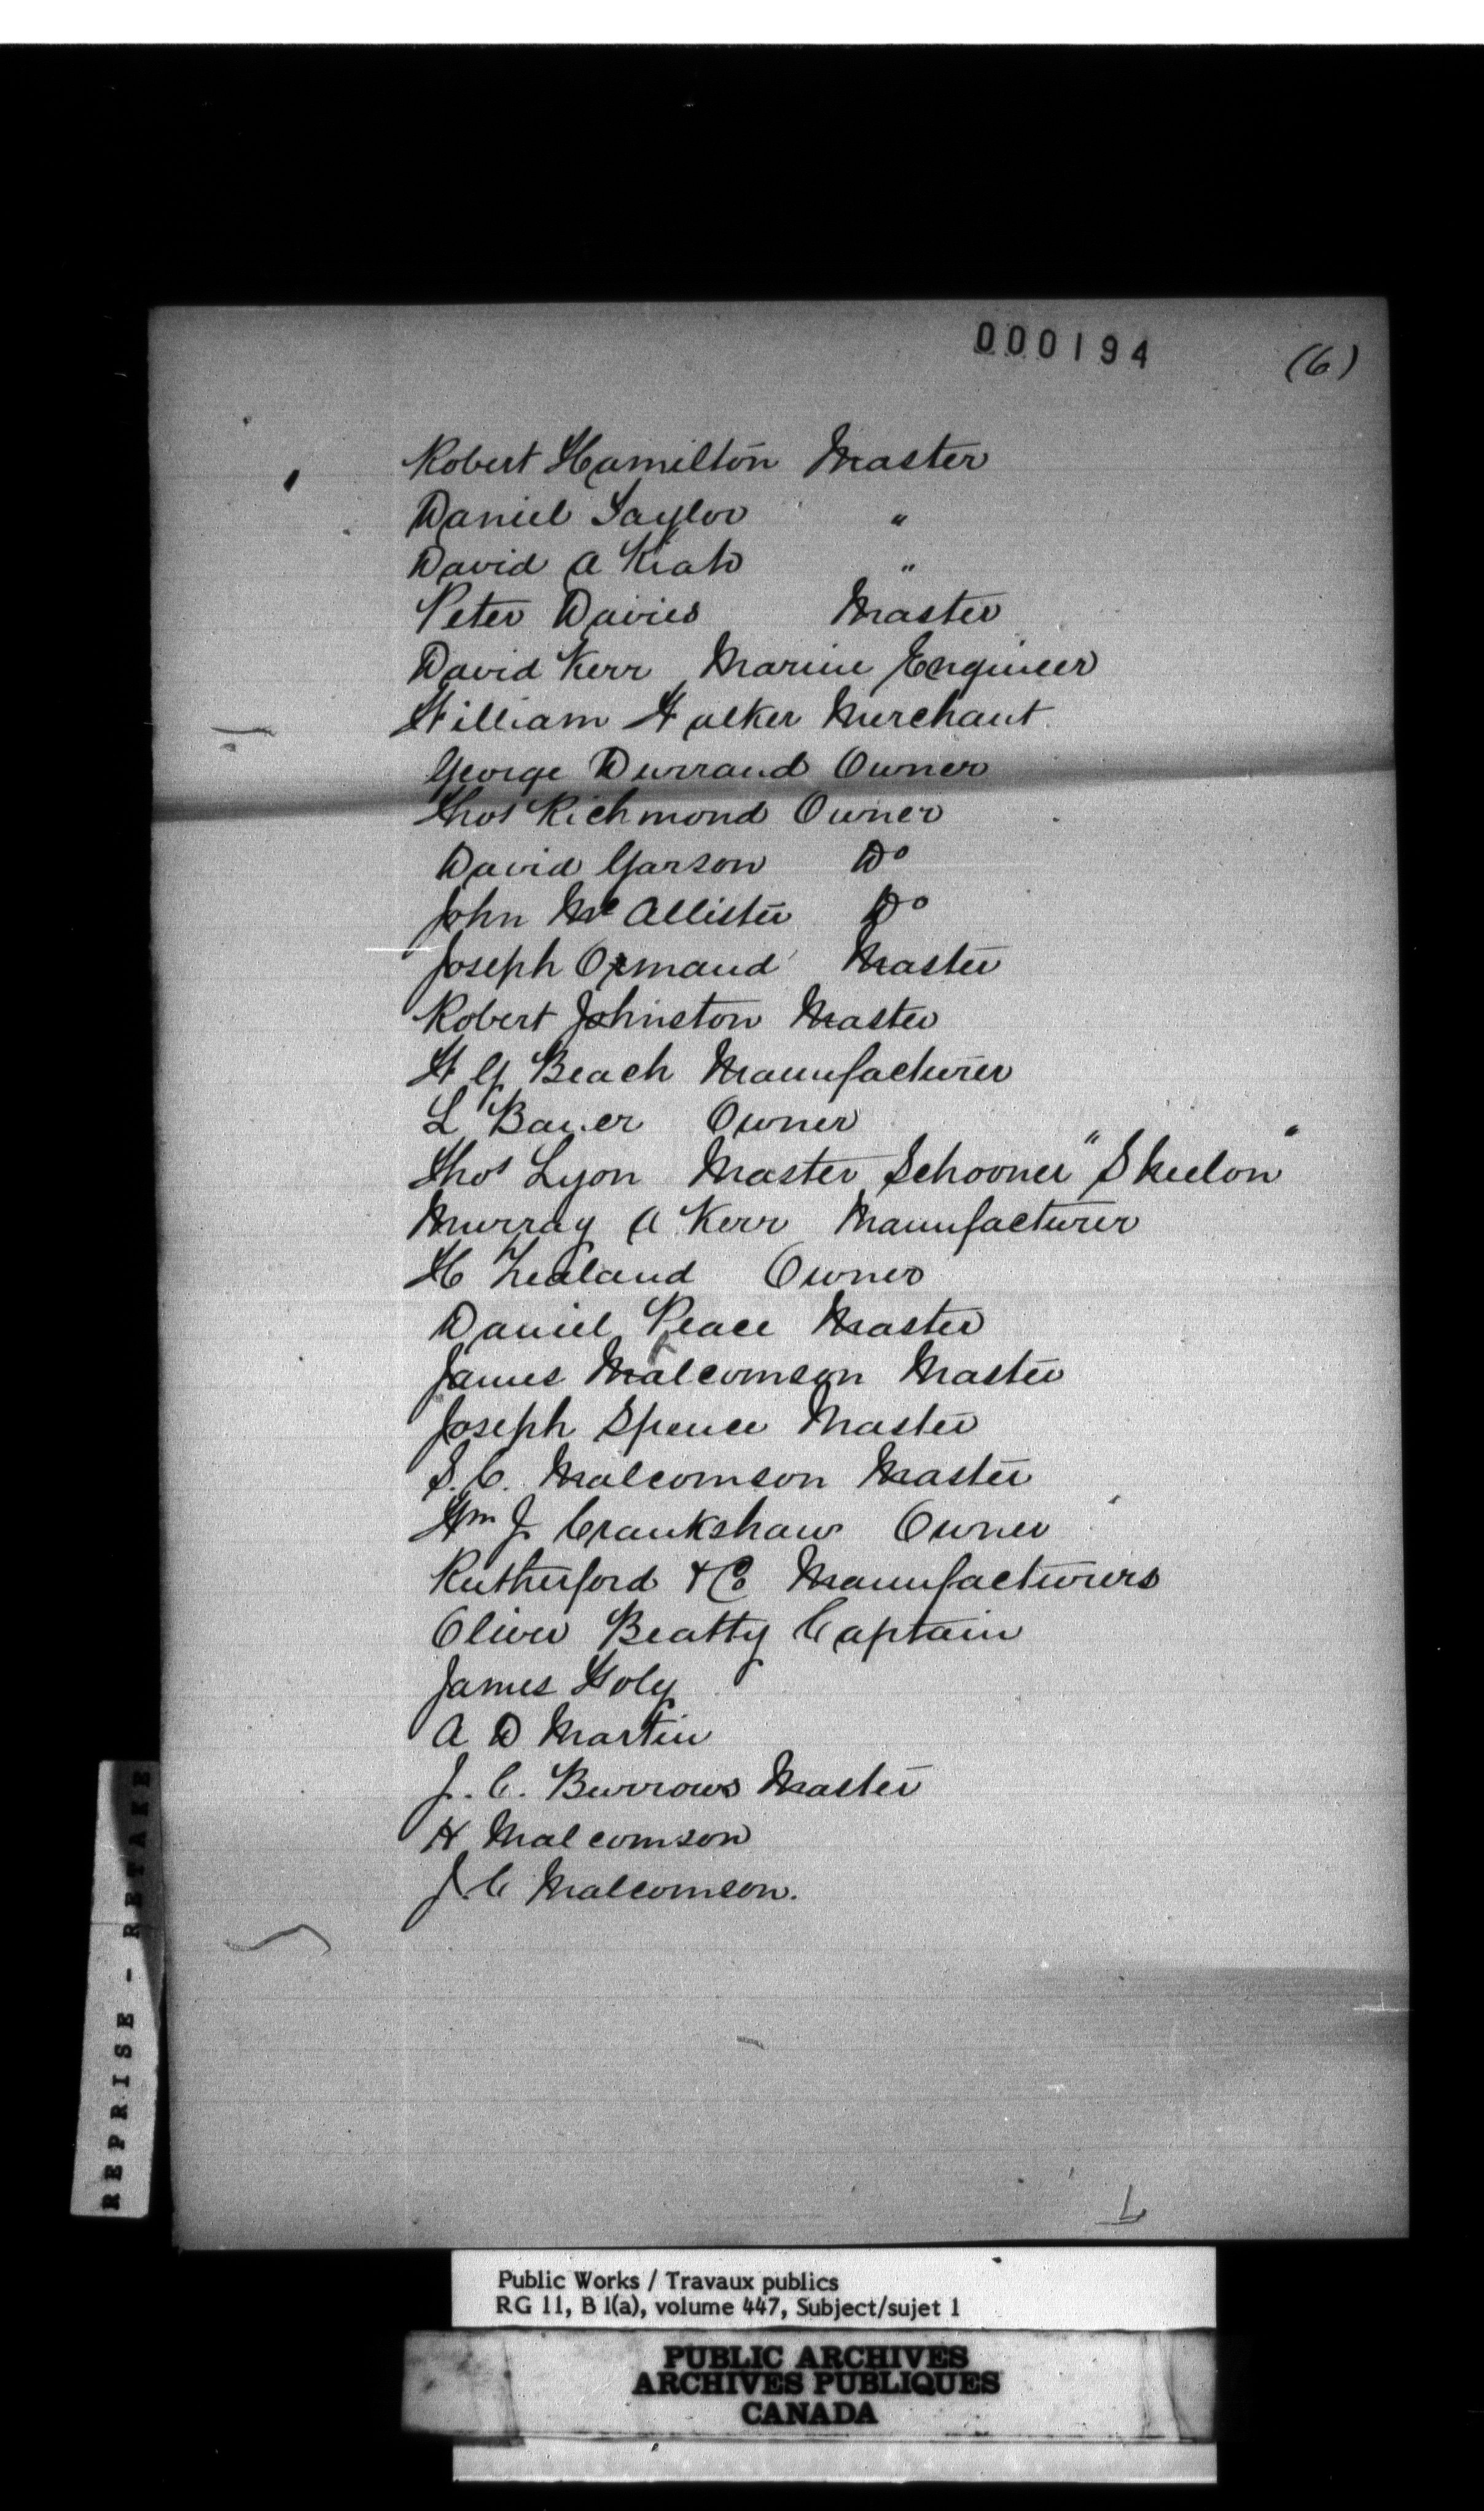 000194
(6)
Robert Hamilton Master
Daniel Taylor "
David A Kiah "
Peter Davies Master
David Kerr Marine Engineer
William Walker Merchant
George Durrand Owner
Thos Richmond Owner
David Garson Do
John McAllister Do
Joseph Ormand Master
Robert Johnston Master
W G Beach Manufacturer
L Bauer Owner
Thos Lyon Master Schooner "Skeelon"
Murray A Kerr Manufacturer
H Zealand Owner
Daniel Peace Master
James Malcomson Master
Joseph Spence Master
S. C. Malcomson Master
Wm J Crankshaw Owner
Rutherford & Co Manufacturers
Oliver Beatty Captain
James
A D Martin
J. C. Burrows Master
H Malcomson
J. C Malcomson.
L
REPRISE - RETAKE
Public Works / Travaux publics
RG 11, B 1(a), volume 447, Subject/sujet 1
PUBLIC ARCHIVES
ARCHIVES PUBLIQUES
CANADA